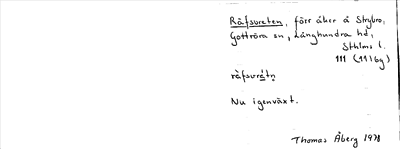 Råfsureten, förr åker å Strybro,
Gottröra sn, Långhundra hd,
Sthlms l.
111 (11)6g)
råfsurétn
Nu igenväxt.
Thomas Åberg 1978